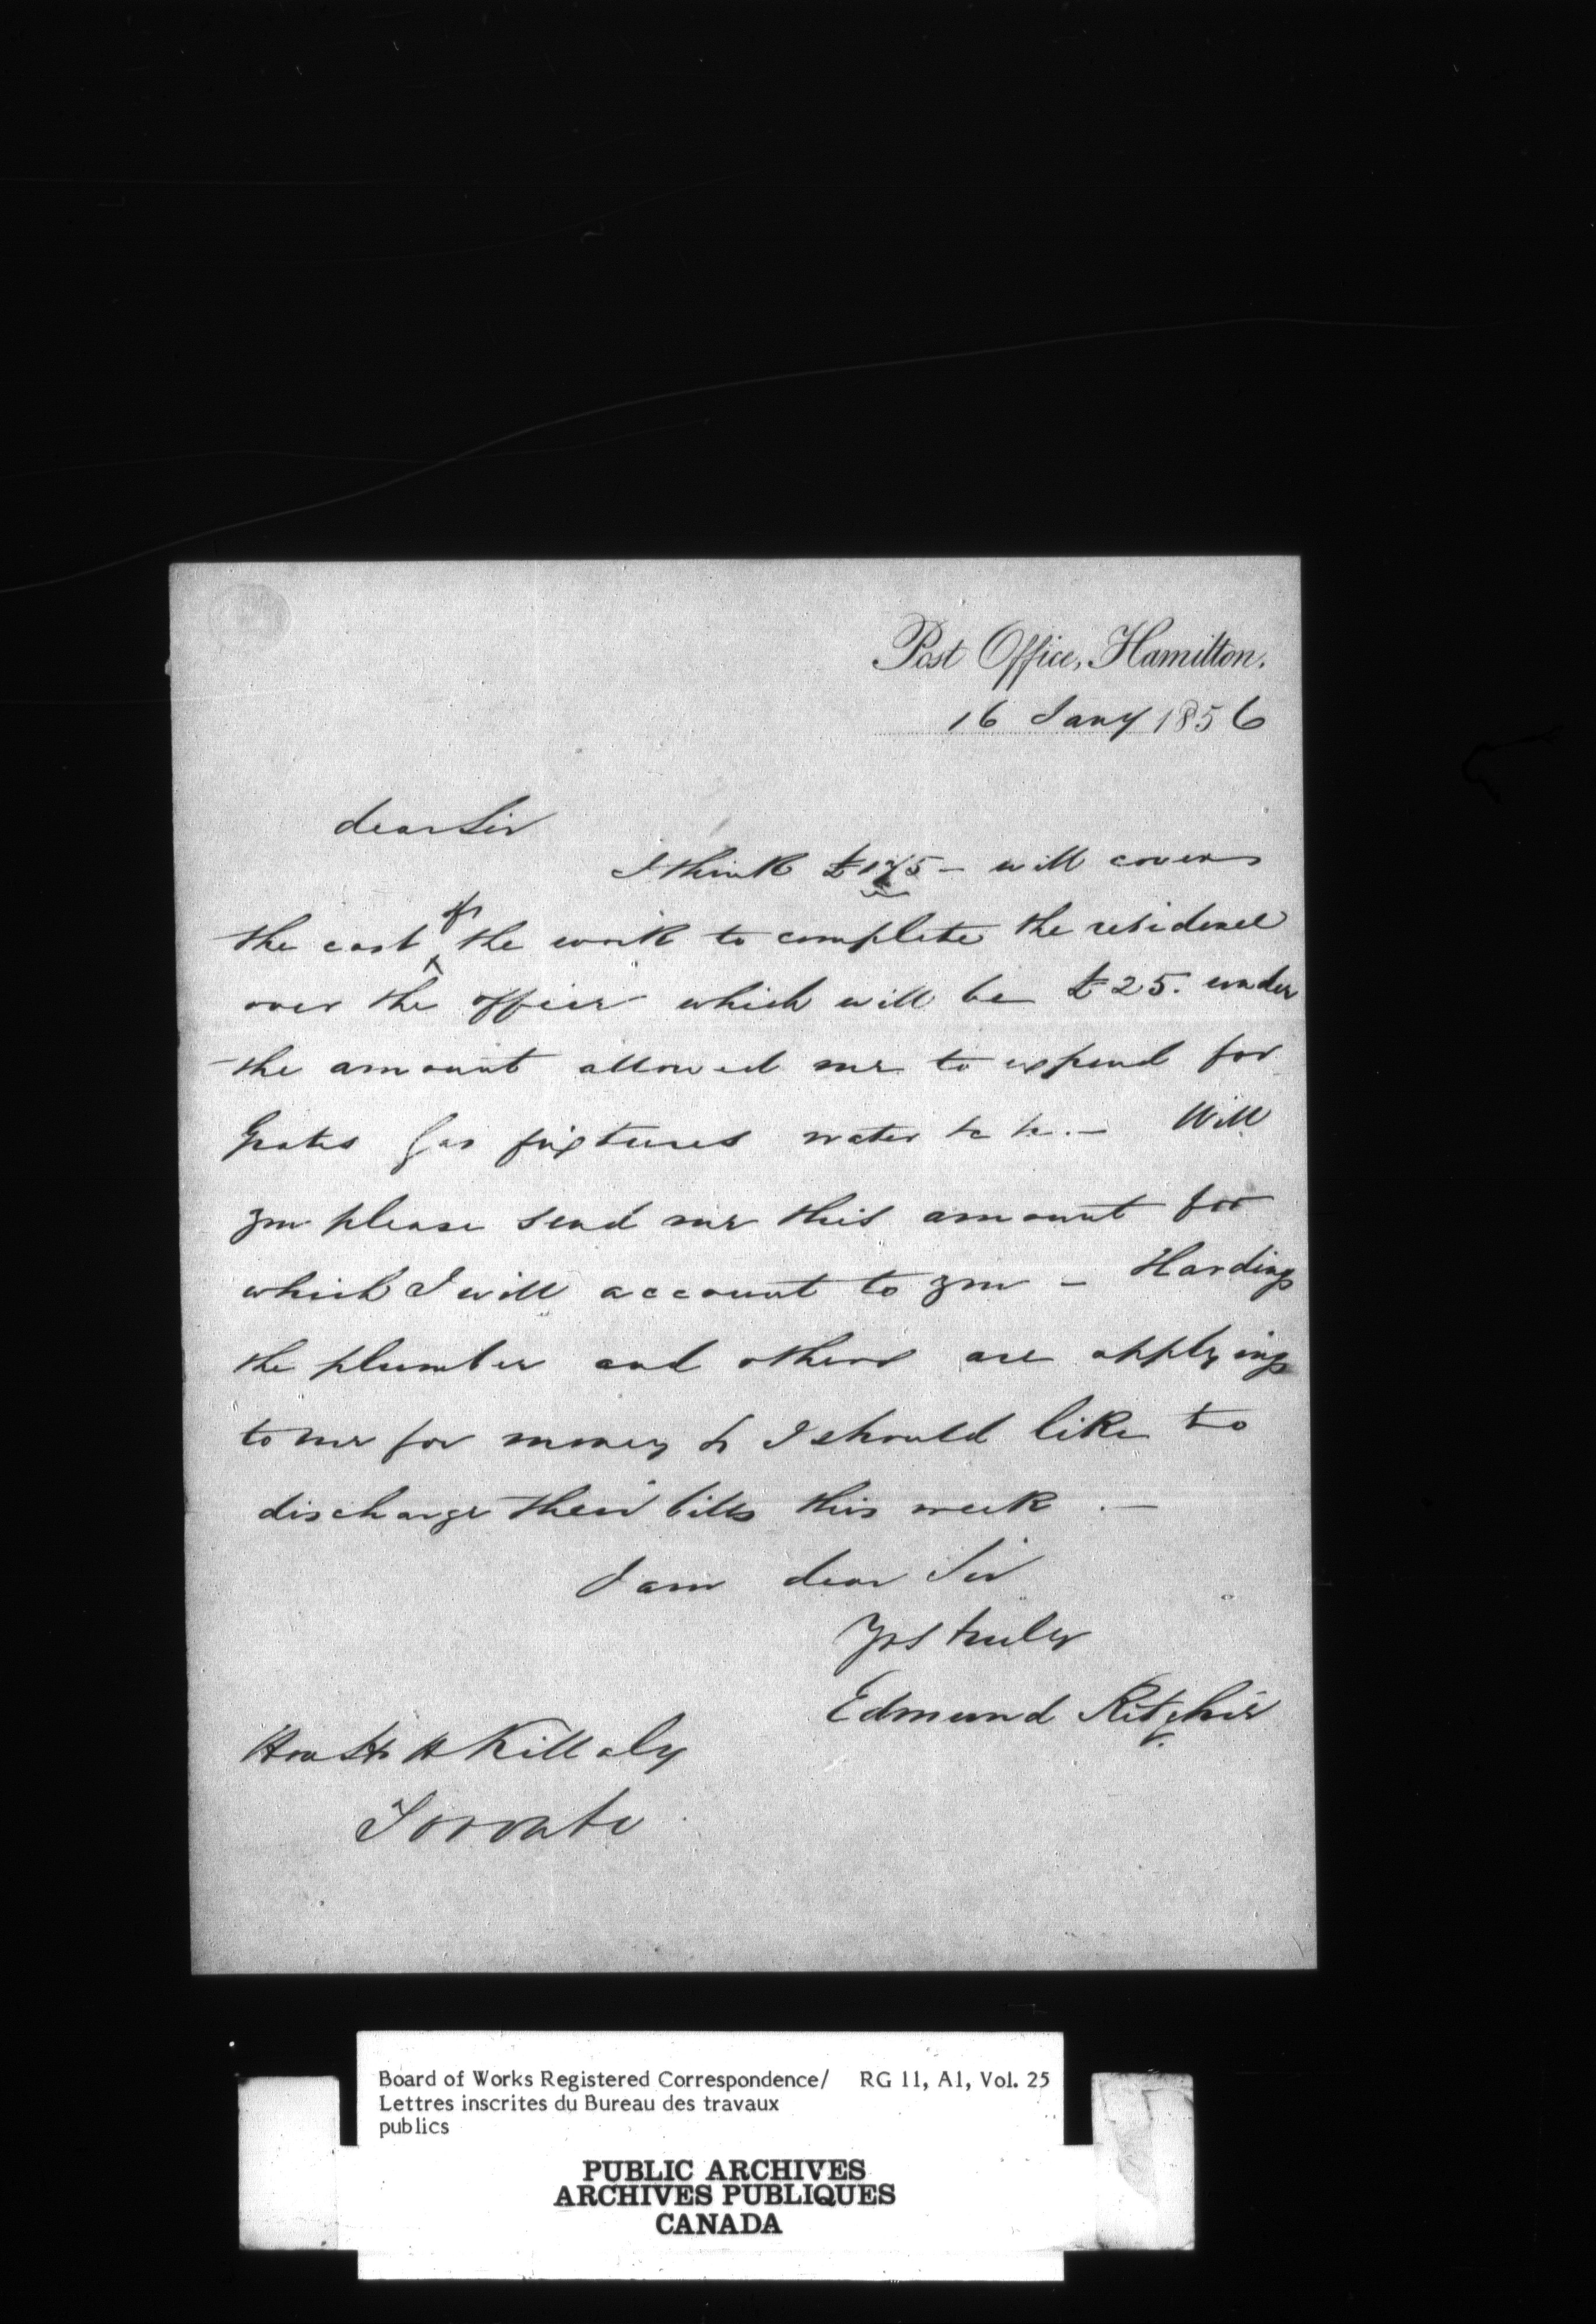 Post Office, Hamilton.
16 Jany 1856
dear Sir
I think £175 – will cover
the cost of the work to complete the residence
over the office which will be £25. under
the amount allowed me to expend for
Grates Gas fixtures water &c &c. – Will
you please send me this amount for
which I will account to you – Harding
the plumber and others are applying
to me for money & I should like to
discharge their bills this week . –
I am dear Sir
Yrs truly
Edmund Ritchie
Hon H H Killaly
Toronto
Board of Works Registered Correspondence/ RG 11, A1, Vol. 25
Lettres inscrites du Bureau des travaux
publics
PUBLIC ARCHIVES
ARCHIVES PUBLIQUES
CANADA